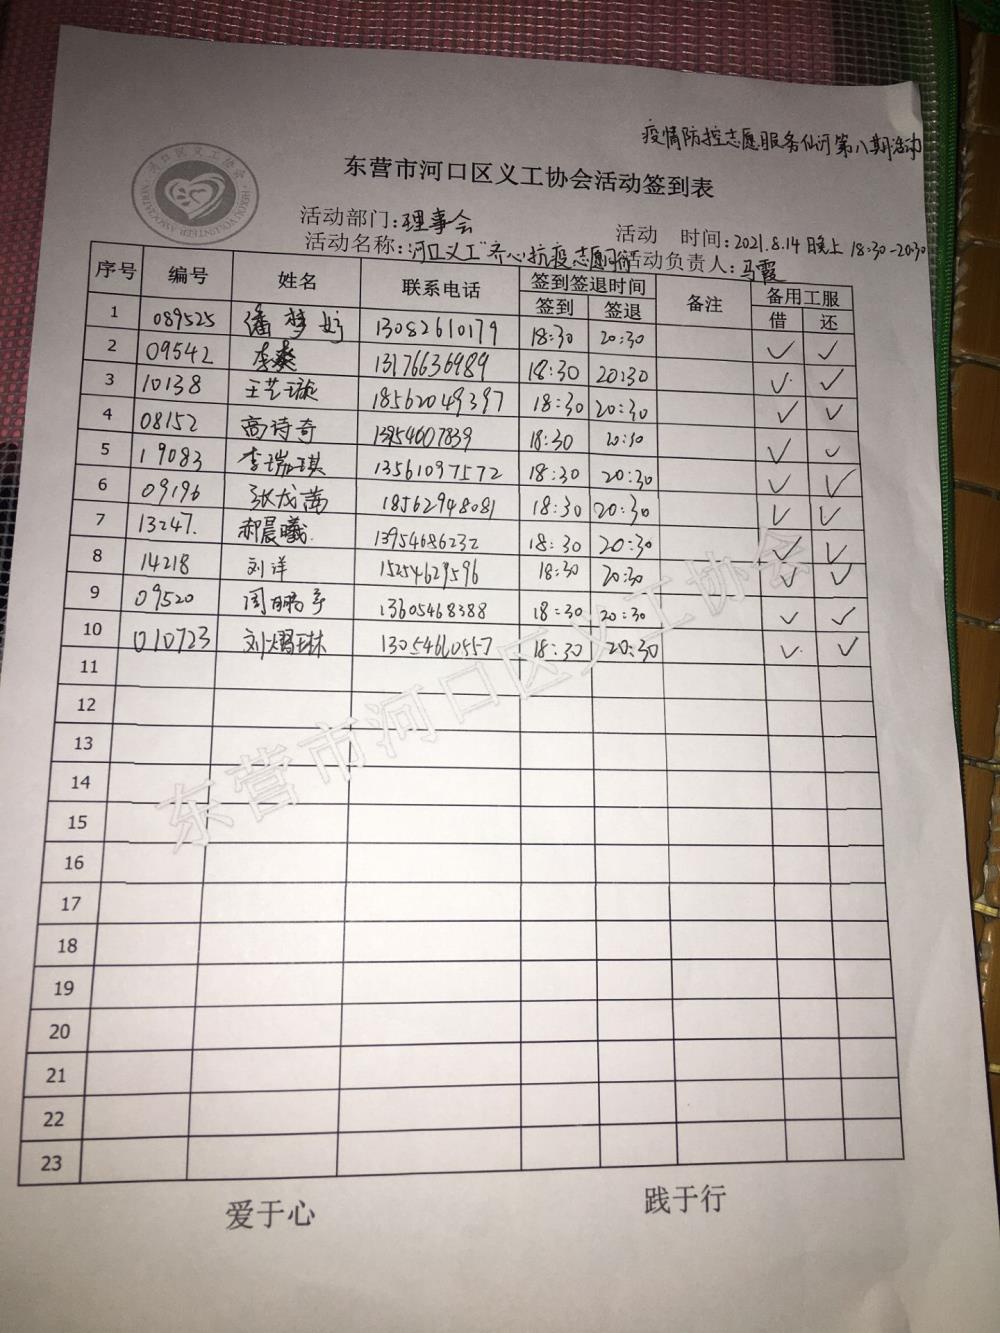 疫情防控志愿服务仙河第八期活动
东营市河口区义工协会活动签到表
活动部门:理事会 活动 时间:2021.8.14晚上 18:30-20:30
活动名称:河口义工"齐心抗疫志愿同行 活动负责人:马霞
序号 编号 姓名 联系电话 签到签退时间 备注 备用工服
签到 签退 借 还
1 089525 潘梦 13082610179 18:30 20:30 ✓ ✓
2 09542 李爽 13176636989 18:30 20:30 ✓ ✓
3 10138 王艺璇 18562049397 18:30 20:30 ✓ ✓
4 08152 高诗奇 13954607839 18:30 20:30 ✓ ✓
5 19083 李瑞琪 13561097572 18:30 20:30 ✓ ✓
6 09196 张成茜 18562948081 18:30 20:30 ✓ ✓
7 13247. 郝晨曦 13954686232 18:30 20:30 ✓ ✓
8 14218 刘洋 15254629596 18:30 20:30 ✓ ✓
9 09520 周鹏宇 13605468388 18:30 20:30 ✓ ✓
10 010723 刘熠琳 13054660557 18:30 20:30 ✓ ✓
11
12
13
14
15
16
17
18
19
20
21
22
23
东营市河口区义工协会
爱于心 践于行